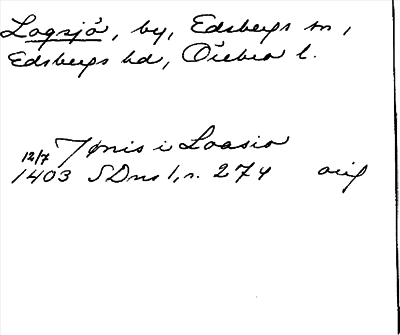 Logsjö, by, Edsbergs sn,
Edsbergs hd, Örebro l.
Jönis i Loasio
12/7
1403 SDns 1, nr. 274 orig